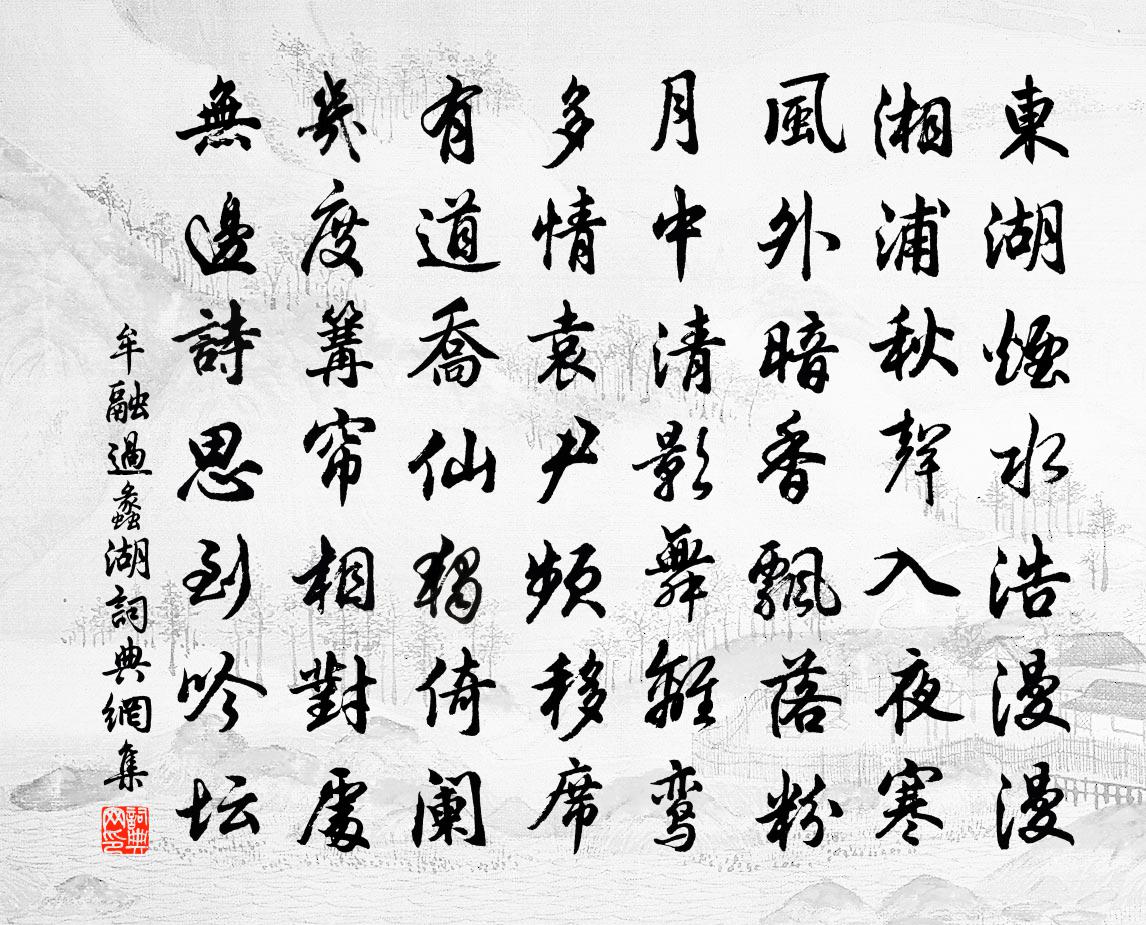 東湖煙水浩漫漫
湘浦秋聲入夜寒
風外暗香飄落粉
月中清影舞離鸾
多情袁尹頻移席
有道喬仙獨倚阑
幾度篝帘相對處
無邊詩思到吟坛
牟融過蠡湖詞典網集
詞典网印